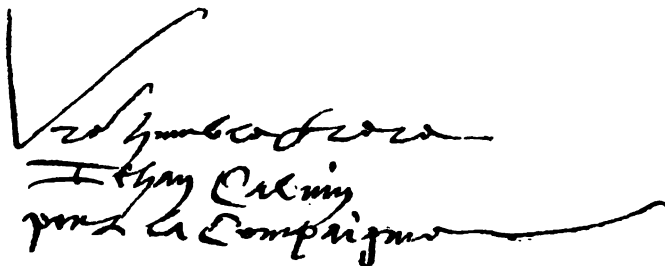 Vre humble frere
Jehan Calvin
pour la Compaigme